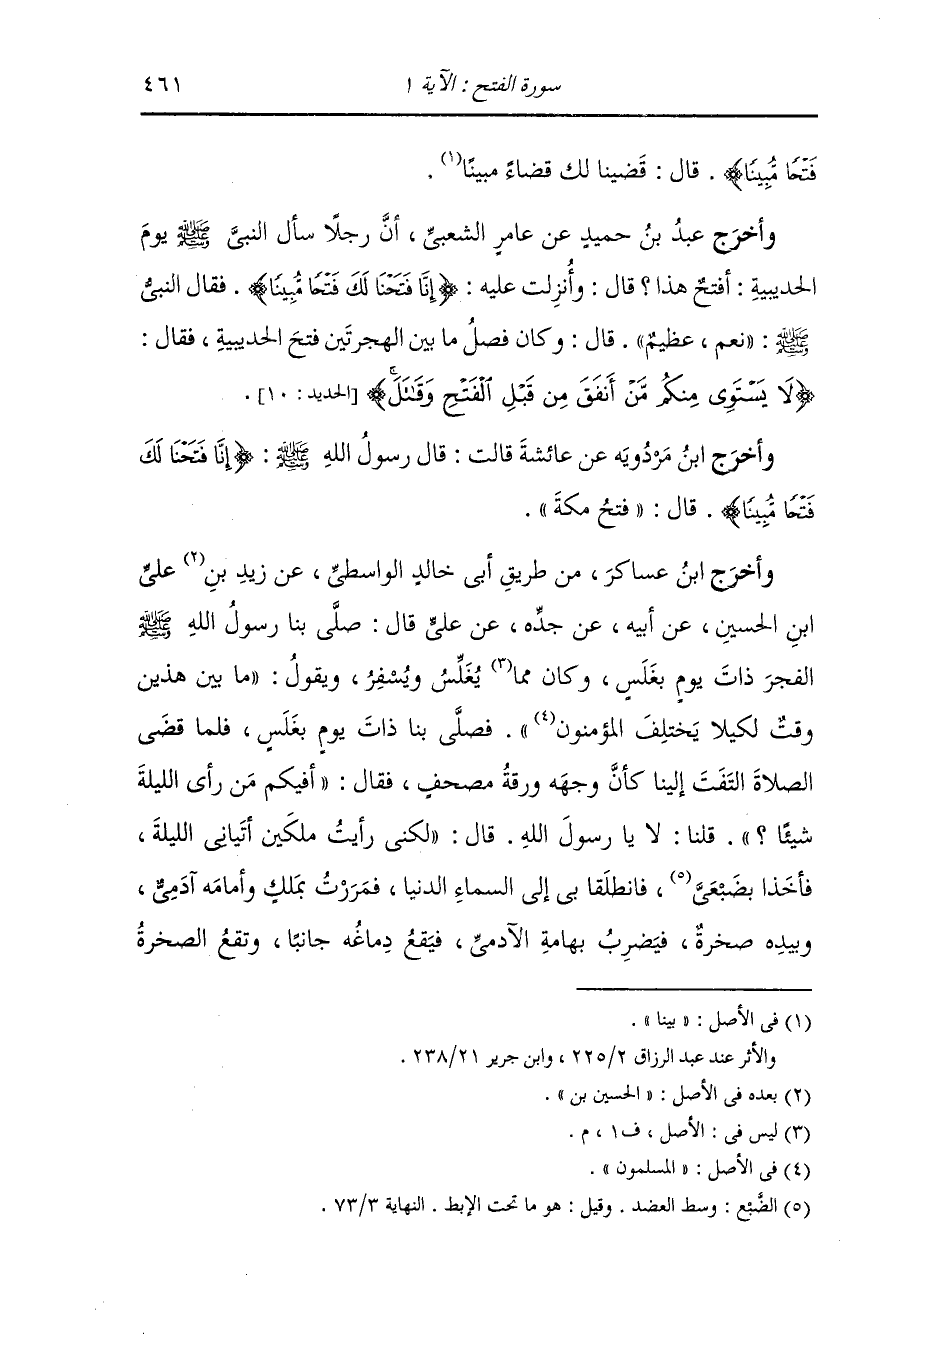 سورة الفتح : الآية ١ ٤٦١
فَتْحًا مُّبِينًا﴾ . قال : قَضينا لك قضاءً مبينًا(١) .
وأخرَج عبدُ بنُ حميدٍ عن عامرٍ الشعبىِّ ، أنَّ رجلًا سأل النبىَّ ﷺ يومَ
الحديبيةِ : أفتحٌ هذا ؟ قال : وأُنزِلت عليه : ﴿إِنَّا فَتَحْنَا لَكَ فَتْحًا مُّبِينًا﴾ . فقال النبىُّ
ﷺ : «نعم ، عظيمٌ» . قال : وكان فصلُ ما بين الهجرتَين فتحَ الحديبيةِ ، فقال :
﴿لَا يَسْتَوِى مِنكُم مَّنْ أَنفَقَ مِن قَبْلِ ٱلْفَتْحِ وَقَٰتَلَۚ﴾ [الحديد : ١٠] .
وأخرَج ابنُ مَرْدُويَه عن عائشةَ قالت : قال رسولُ اللهِ ﷺ : ﴿إِنَّا فَتَحْنَا لَكَ
فَتْحًا مُّبِينًا﴾ . قال : « فتحُ مكةَ » .
وأخرَج ابنُ عساكرَ ، من طريقِ أبى خالدٍ الواسطىِّ ، عن زيدِ بنِ(٢) علىِّ
ابنِ الحسينِ ، عن أبيه ، عن جدِّه ، عن علىٍّ قال : صلَّى بنا رسولُ اللهِ ﷺ
الفجرَ ذاتَ يومٍ بغَلَسٍ ، وكان مما(٣) يُغَلِّسُ ويُسْفِرُ ، ويقولُ : «ما بين هذين
وقتٌ لكيلا يَختلِفَ المؤمنون(٤)» . فصلَّى بنا ذاتَ يومٍ بغَلَسٍ ، فلما قضَى
الصلاةَ التَفَتَ إلينا كأنَّ وجهَه ورقةُ مصحفٍ ، فقال : « أفيكم مَن رأى الليلةَ
شيئًا ؟ » . قلنا : لا يا رسولَ اللهِ . قال : «لكنى رأيتُ ملكَين أتَيانى الليلةَ ،
فأخَذا بضَبْعَىَّ(٥) ، فانطلَقا بى إلى السماءِ الدنيا ، فمَرَرْتُ بمَلكٍ وأمامَه آدَمِىٌّ ،
وبيدِه صخرةٌ ، فيَضرِبُ بهامةِ الآدمىِّ ، فيَقعُ دِماغُه جانبًا ، وتقعُ الصخرةُ
(١) فى الأصل : « بينا » .
والأثر عند عبد الرزاق ٢/ ٢٢٥ ، وابن جرير ٢١/ ٢٣٨ .
(٢) بعده فى الأصل : « الحسين بن » .
(٣) ليس فى : الأصل ، ف١ ، م .
(٤) فى الأصل : « المسلمون » .
(٥) الضَّبْع : وسط العضد . وقيل : هو ما تحت الإبط . النهاية ٣/ ٧٣ .